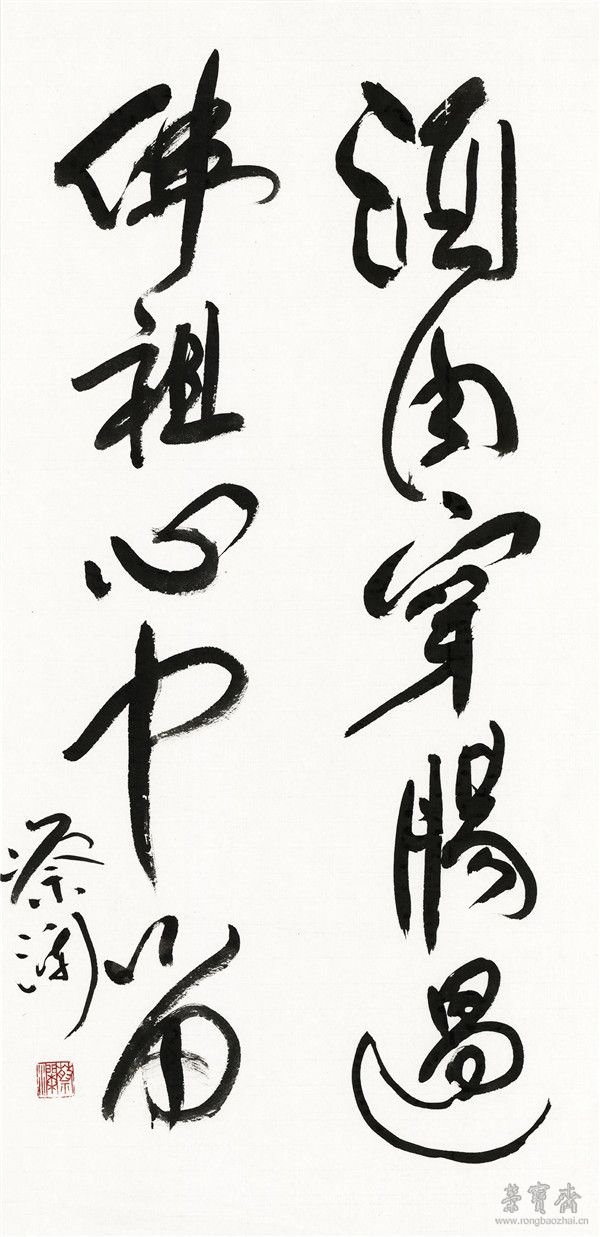 酒肉穿腸過
佛祖心中留
蔡瀾
蔡瀾
榮寶齋
www.rongbaozhai.cn